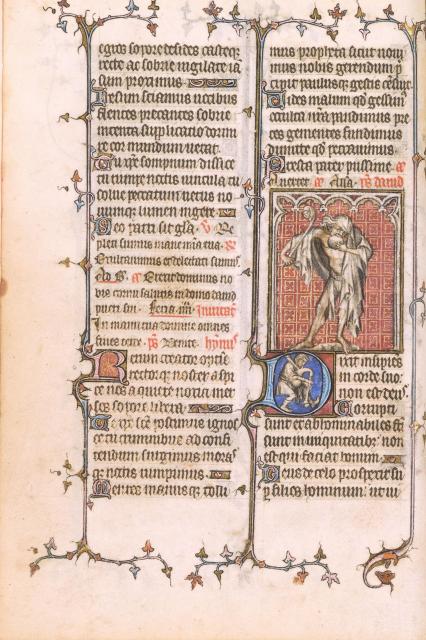 egros sopore desides castiget
recte ac sobrie vigilare ia
sum proximus.
Iesum sciamus vocibus
flentes precantes sobrie
intenta supplicatio dormi
re cor mundum vetat.
Tu xpe sompnum dissice
tu rumpe noctis vincula tu
solve peccatum vetus no
vumque lumen ingere.
Deo patri sit gla. v Re
pleti sumus mane mia tua. R
Exultavimus et delectati sumus.
Ad B. a Erexit dominus no
bis cornu salutis in domo david
pueri sui. Feria iiii. Invitat
In manu tua domine omnes
fines terre. ps Venite. hynus
Rerum creator optime
rectorque noster aspi
ce nos a quiete noxia mer
sos sopore libera.
Te sce xpe poscimus ignos
ce tu criminibus ad confi
tendum surgimus moras
que noctis rumpimus.
Mentes manusque tolli
mus propheta sicut noctu
mus nobis gerendum p
cipit paulusque gestis censuit.
Vides malum qd gessimus
occulta nra pandimus pre
ces gementes fundimus
dimitte qd peccavimus.
Presta pater piissime a
Avertet a Ana. ps david
Dixit insipiens
in corde suo:
non est deus.
Corrupti
sunt et abhominabiles fci
sunt in iniquitatibus: non
est qui faciat bonum.
Deus de celo prospexit su
p filios hominum: ut vi